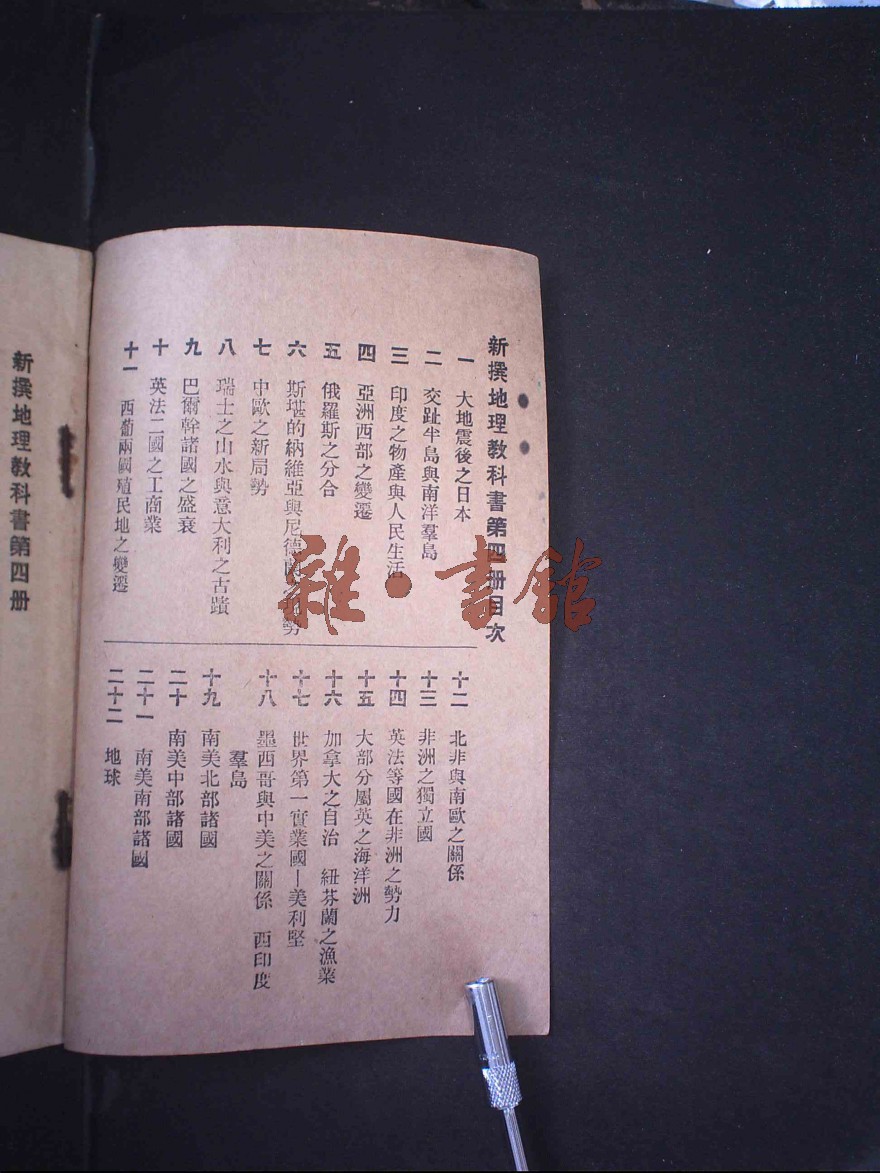 新撰地理教科書第四册目次
一 大地震後之日本
二 交趾半島與南洋羣島
三 印度之物產與人民生活
四 亞洲西部之變遷
五 俄羅斯之分合
六 斯堪的納維亞與尼德蘭之形勢
七 中歐之新局勢
八 瑞士之山水與意大利之古蹟
九 巴爾幹諸國之盛衰
十 英法二國之工商業
十一 西葡兩國殖民地之變遷
十二 北非與南歐之關係
十三 非洲之獨立國
十四 英法等國在非洲之勢力
十五 大部分屬英之海洋洲
十六 加拿大之自治 紐芬蘭之漁業
十七 世界第一實業國—美利堅
十八 墨西哥與中美之關係 西印度
羣島
十九 南美北部諸國
二十 南美中部諸國
二十一 南美南部諸國
二十二 地球
新撰地理教科書第四册
雜·書館